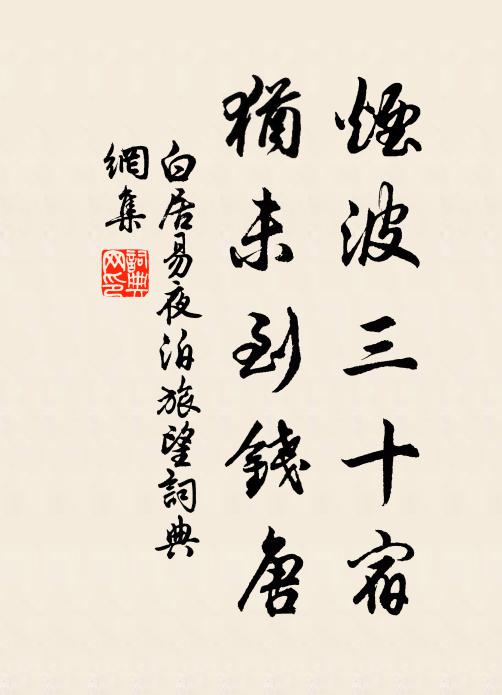 煙波三十宿
猶未到錢唐
白居易夜泊旅望詞典
網集
詞典
网印